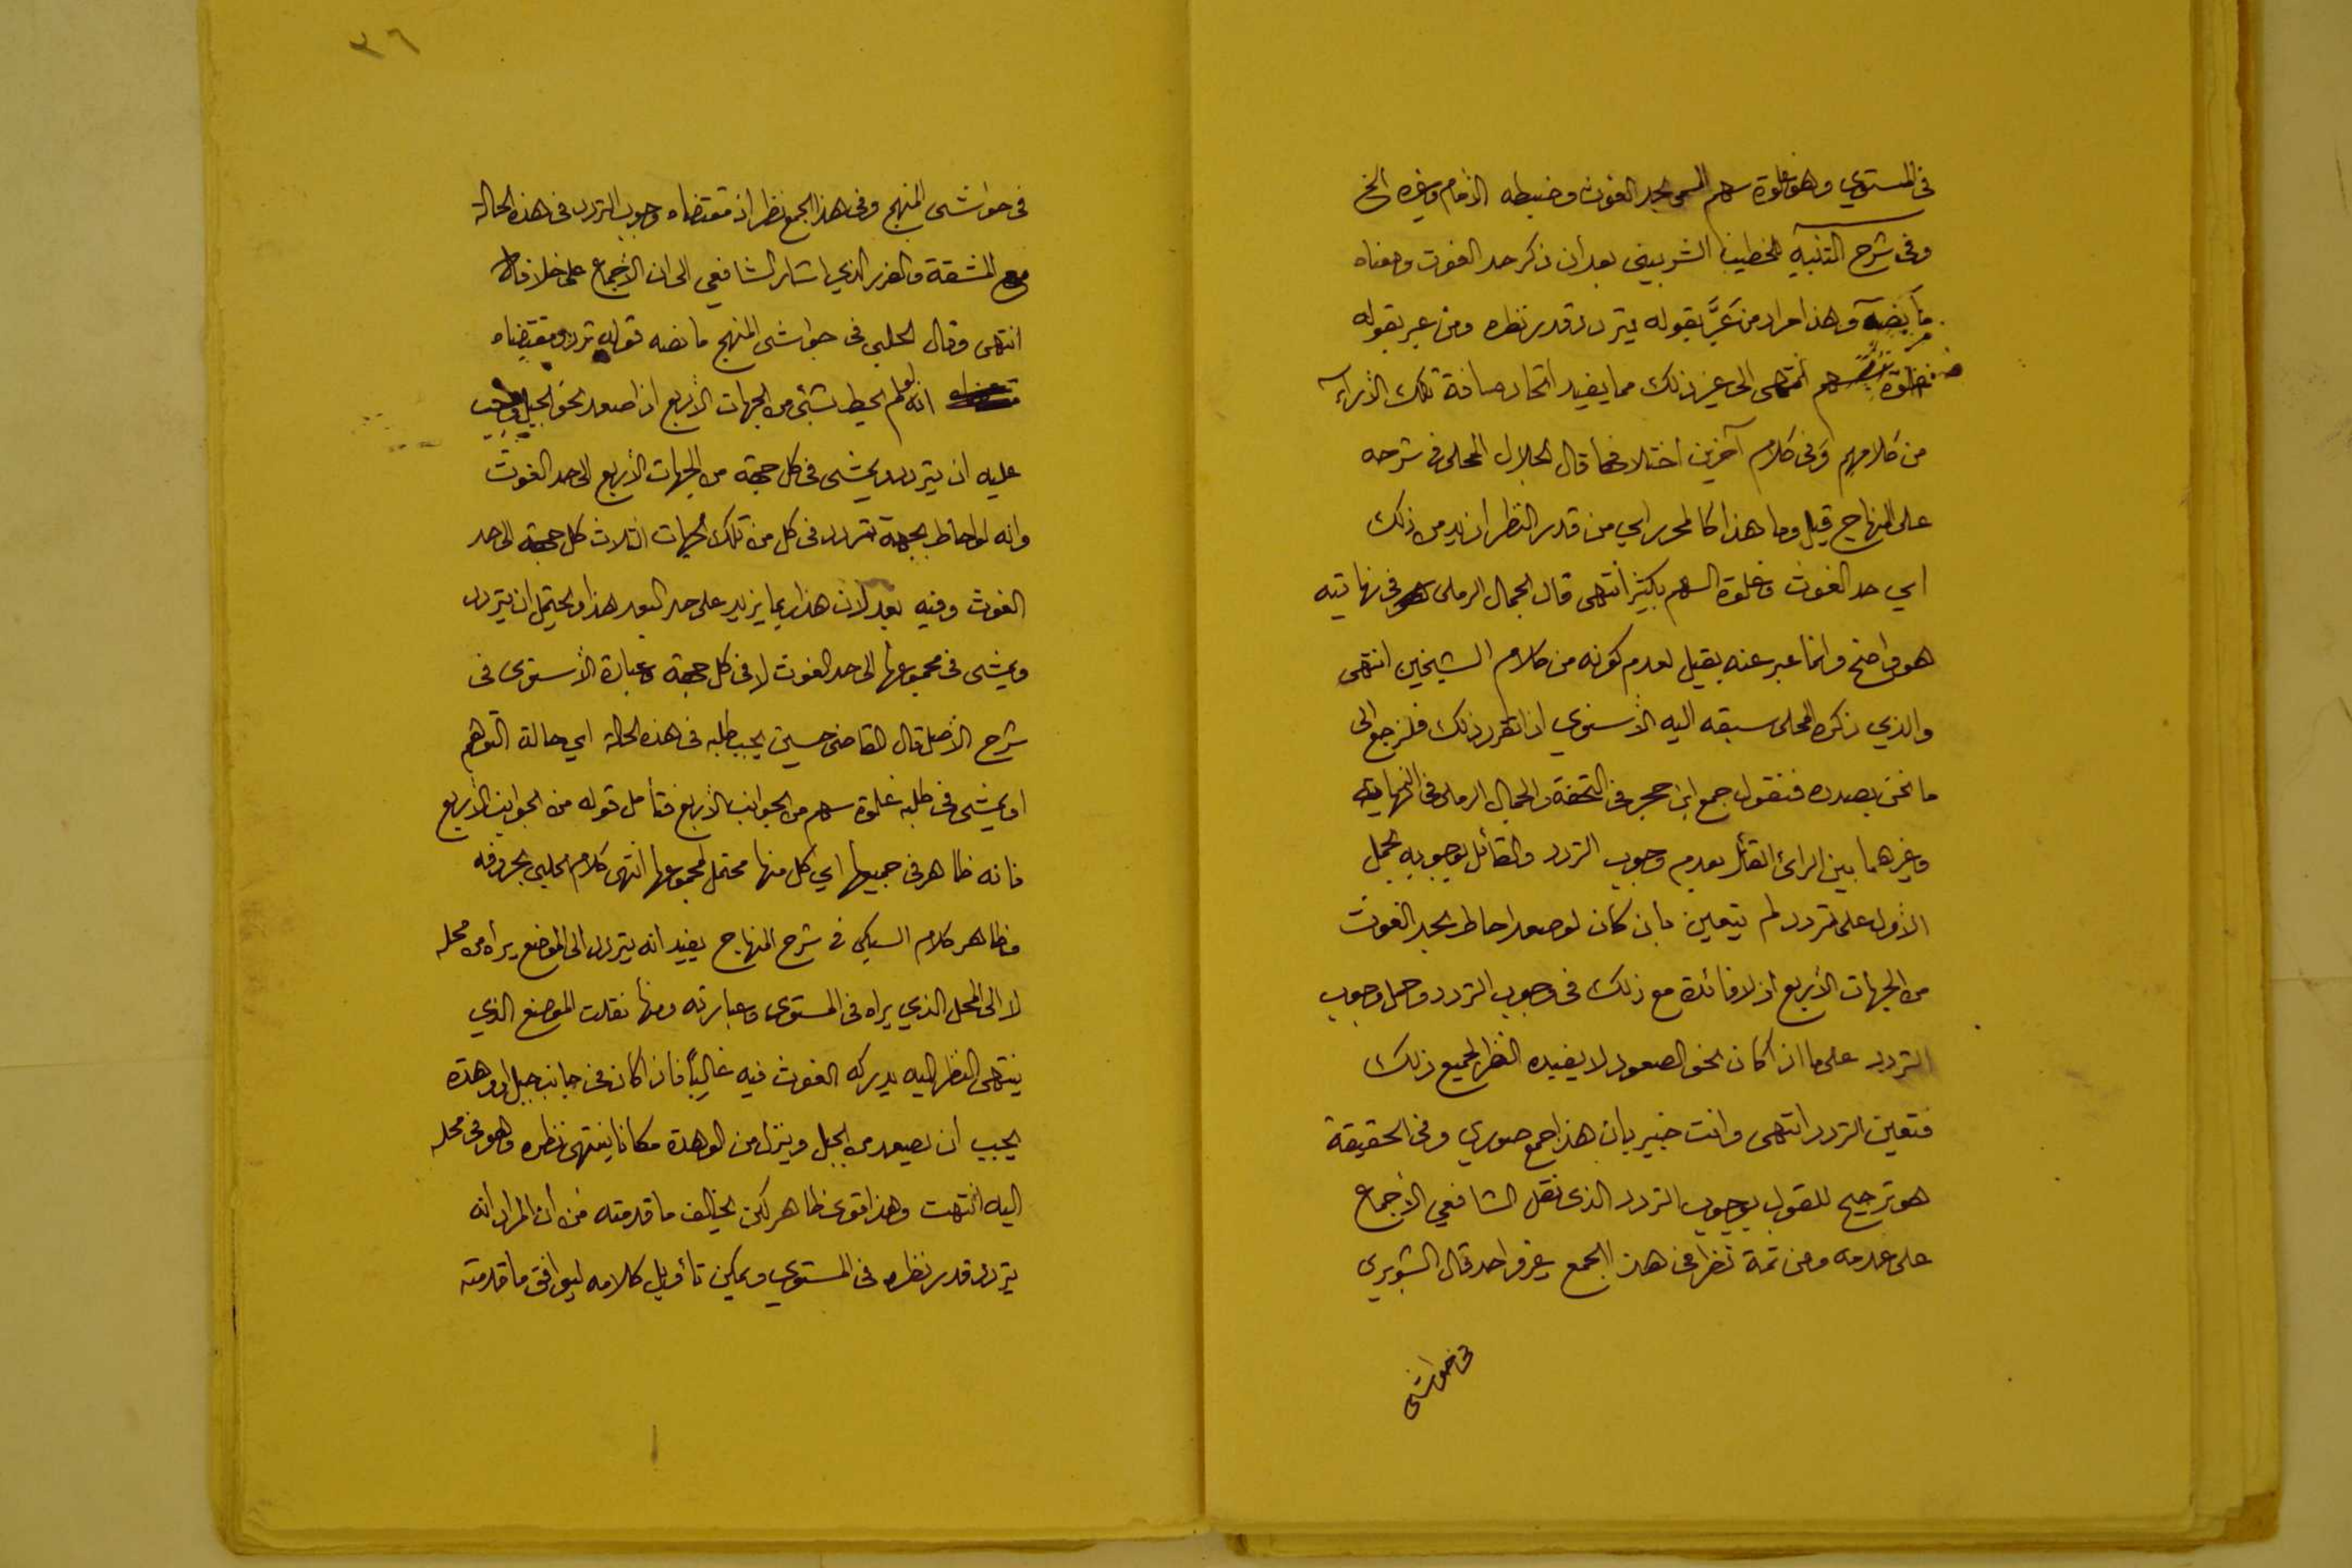 في المستوي وهو غلوة سهم المسمى بحد الغوث وضبطه الامام وغيره الخ
وفي شرح التنبيه للخطيب الشربيني بعد ان ذكر حد الغوث ومعناه
ما نصه وهذا مراد من عبَّر بقوله يتردد قدر نظره ومن عبر بقوله
غلوة سهم انتهى الى غير ذلك مما يفيد اتحاد مسافة تلك الأراء
من كلامهم وفي كلام آخرين اختلافها قال الجلال المحلى في شرحه
على المنهاج قيل وما هنا كالمحرر اي من قدر النظر ازيد من ذلك
اي حد الغوث وغلوة السهم بكثير انتهى قال الجمال الرملي في نهايته
هو واضح وانما عبر عنه بقيل لعدم كونه من كلام الشيخين انتهى
والذي ذكره المحلى سبقه اليه الأسنوي اذا تقرر ذلك فلنرجع الى
ما نحن بصدده فنقول جمع ابن حجر في التحفة والجمال الرملي في النهاية
وغيرهما بين الرأي القائل بعدم وجوب التردد والقائل بوجوبه بحمل
الأول على تردد لم يتعين بأن كان لو صعد احاط بحد الغوث
من الجهات الأربع اذ لا فائدة مع ذلك في وجوب التردد وحمل وجوب
التردد على ما اذا كان نحو الصعود لا يفيده النظر لجميع ذلك
فتعين التردد انتهى وانت خبير بان هذا جمع صوري وفي الحقيقة
هو ترجيح للقول بوجوب التردد الذي نقل الشافعي الأجماع
على عدمه ومن ثمة نظر في هذا الجمع غير واحد قال الشوبري
في حواشي
٣٦
في حواشي المنهج وفي هذا الجمع نظر اذ مقتضاه وجوب التردد في هذه الحالة
مع المشقة والضرر الذي اشار الشافعي الى ان الأجماع على خلافه
انتهى وقال الحلبي في حواشي المنهج ما نصه قوله تردد ومقتضاه
انه لو لم يحط بشئ من الجهات الأربع اذا صعد نحو الجبل وجب
عليه ان يتردد ويمشي في كل جهة من الجهات الأربع الى حد الغوث
وانه لو احاط بجهة تردد في كل من تلك الجهات الثلاث كل جهة الى حد
الغوث وفيه بعد لان هذا ربما يزيد على حد البعد هذا ويحتمل ان يتردد
ويمشي في مجموعها الى حد الغوث لا في كل جهة وعبارة الأسنوي في
شرح الأصل قال القاضي حسين يجب طلبه في هذه الحالة اي حالة التوهم
او يمشي في طلبه غلوة سهم من الجوانب الأربع فتأمل قوله من الجوانب الأربع
فانه ظاهر في جميعها اي كل منها محتمل لمجموعها انتهى كلام الحلبي بحروفه
وظاهر كلام السبكي في شرح المنهاج يفيد انه يتردد الى الموضع يراه من محله
لا الى المحل الذي يراه في المستوي وعبارته ومنها نقلت الموضع الذي
ينتهي النظر اليه يدركه الغوث فيه غالباً فاذا كان في جانب جبل او وهدة
يجب ان يصعد من الجبل وينزل من الوهدة مكانا ينتهي نظره وهو في محله
اليه انتهت وهذا قوي ظاهر لكن يخالف ما قدمته من أن المراد انه
يتردد قدر نظره في المستوي ويمكن تأويل كلامه ليوافق ما قدمته